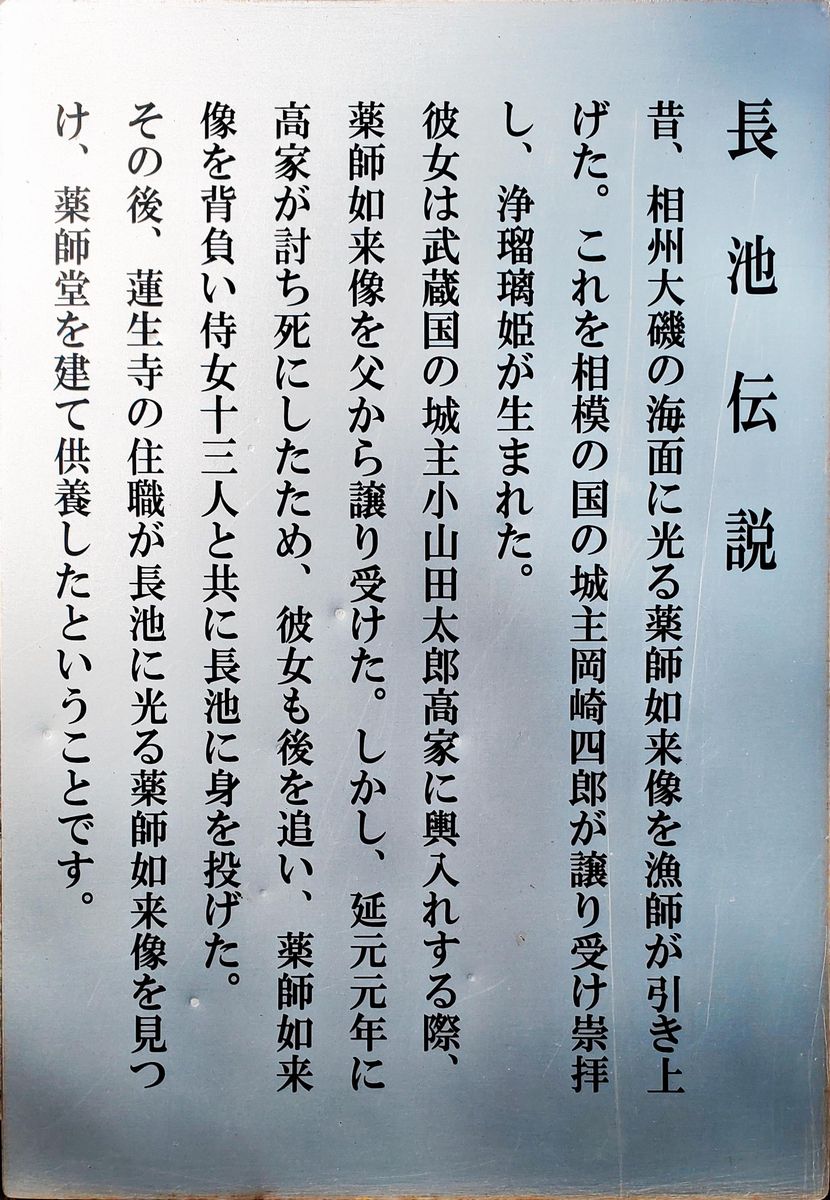 長池伝説
昔、相州大磯の海面に光る薬師如来像を漁師が引き上
げた。これを相模の国の城主岡崎四郎が譲り受け崇拝
し、浄瑠璃姫が生まれた。
彼女は武蔵国の城主小山田太郎高家に輿入れする際、
薬師如来像を父から譲り受けた。しかし、延元元年に
高家が討ち死にしたため、彼女も後を追い、薬師如来
像を背負い侍女十三人と共に長池に身を投げた。
その後、蓮生寺の住職が長池に光る薬師如来像を見つ
け、薬師堂を建て供養したということです。